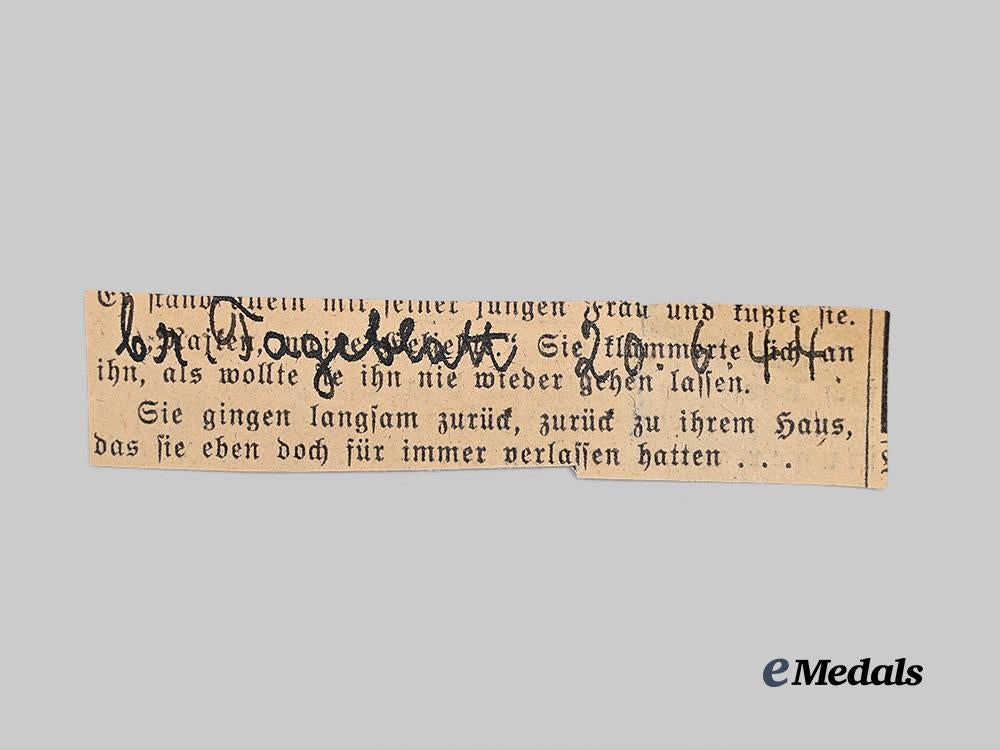 Er stand allein mit seiner jungen Frau und küßte sie.
Sie klammerte sich an
ihn, als wollte sie ihn nie wieder gehen lassen.
Sie gingen langsam zurück, zurück zu ihrem Haus,
das sie eben doch für immer verlassen hatten . . .
Tageblatt 20.6.44
eMedals